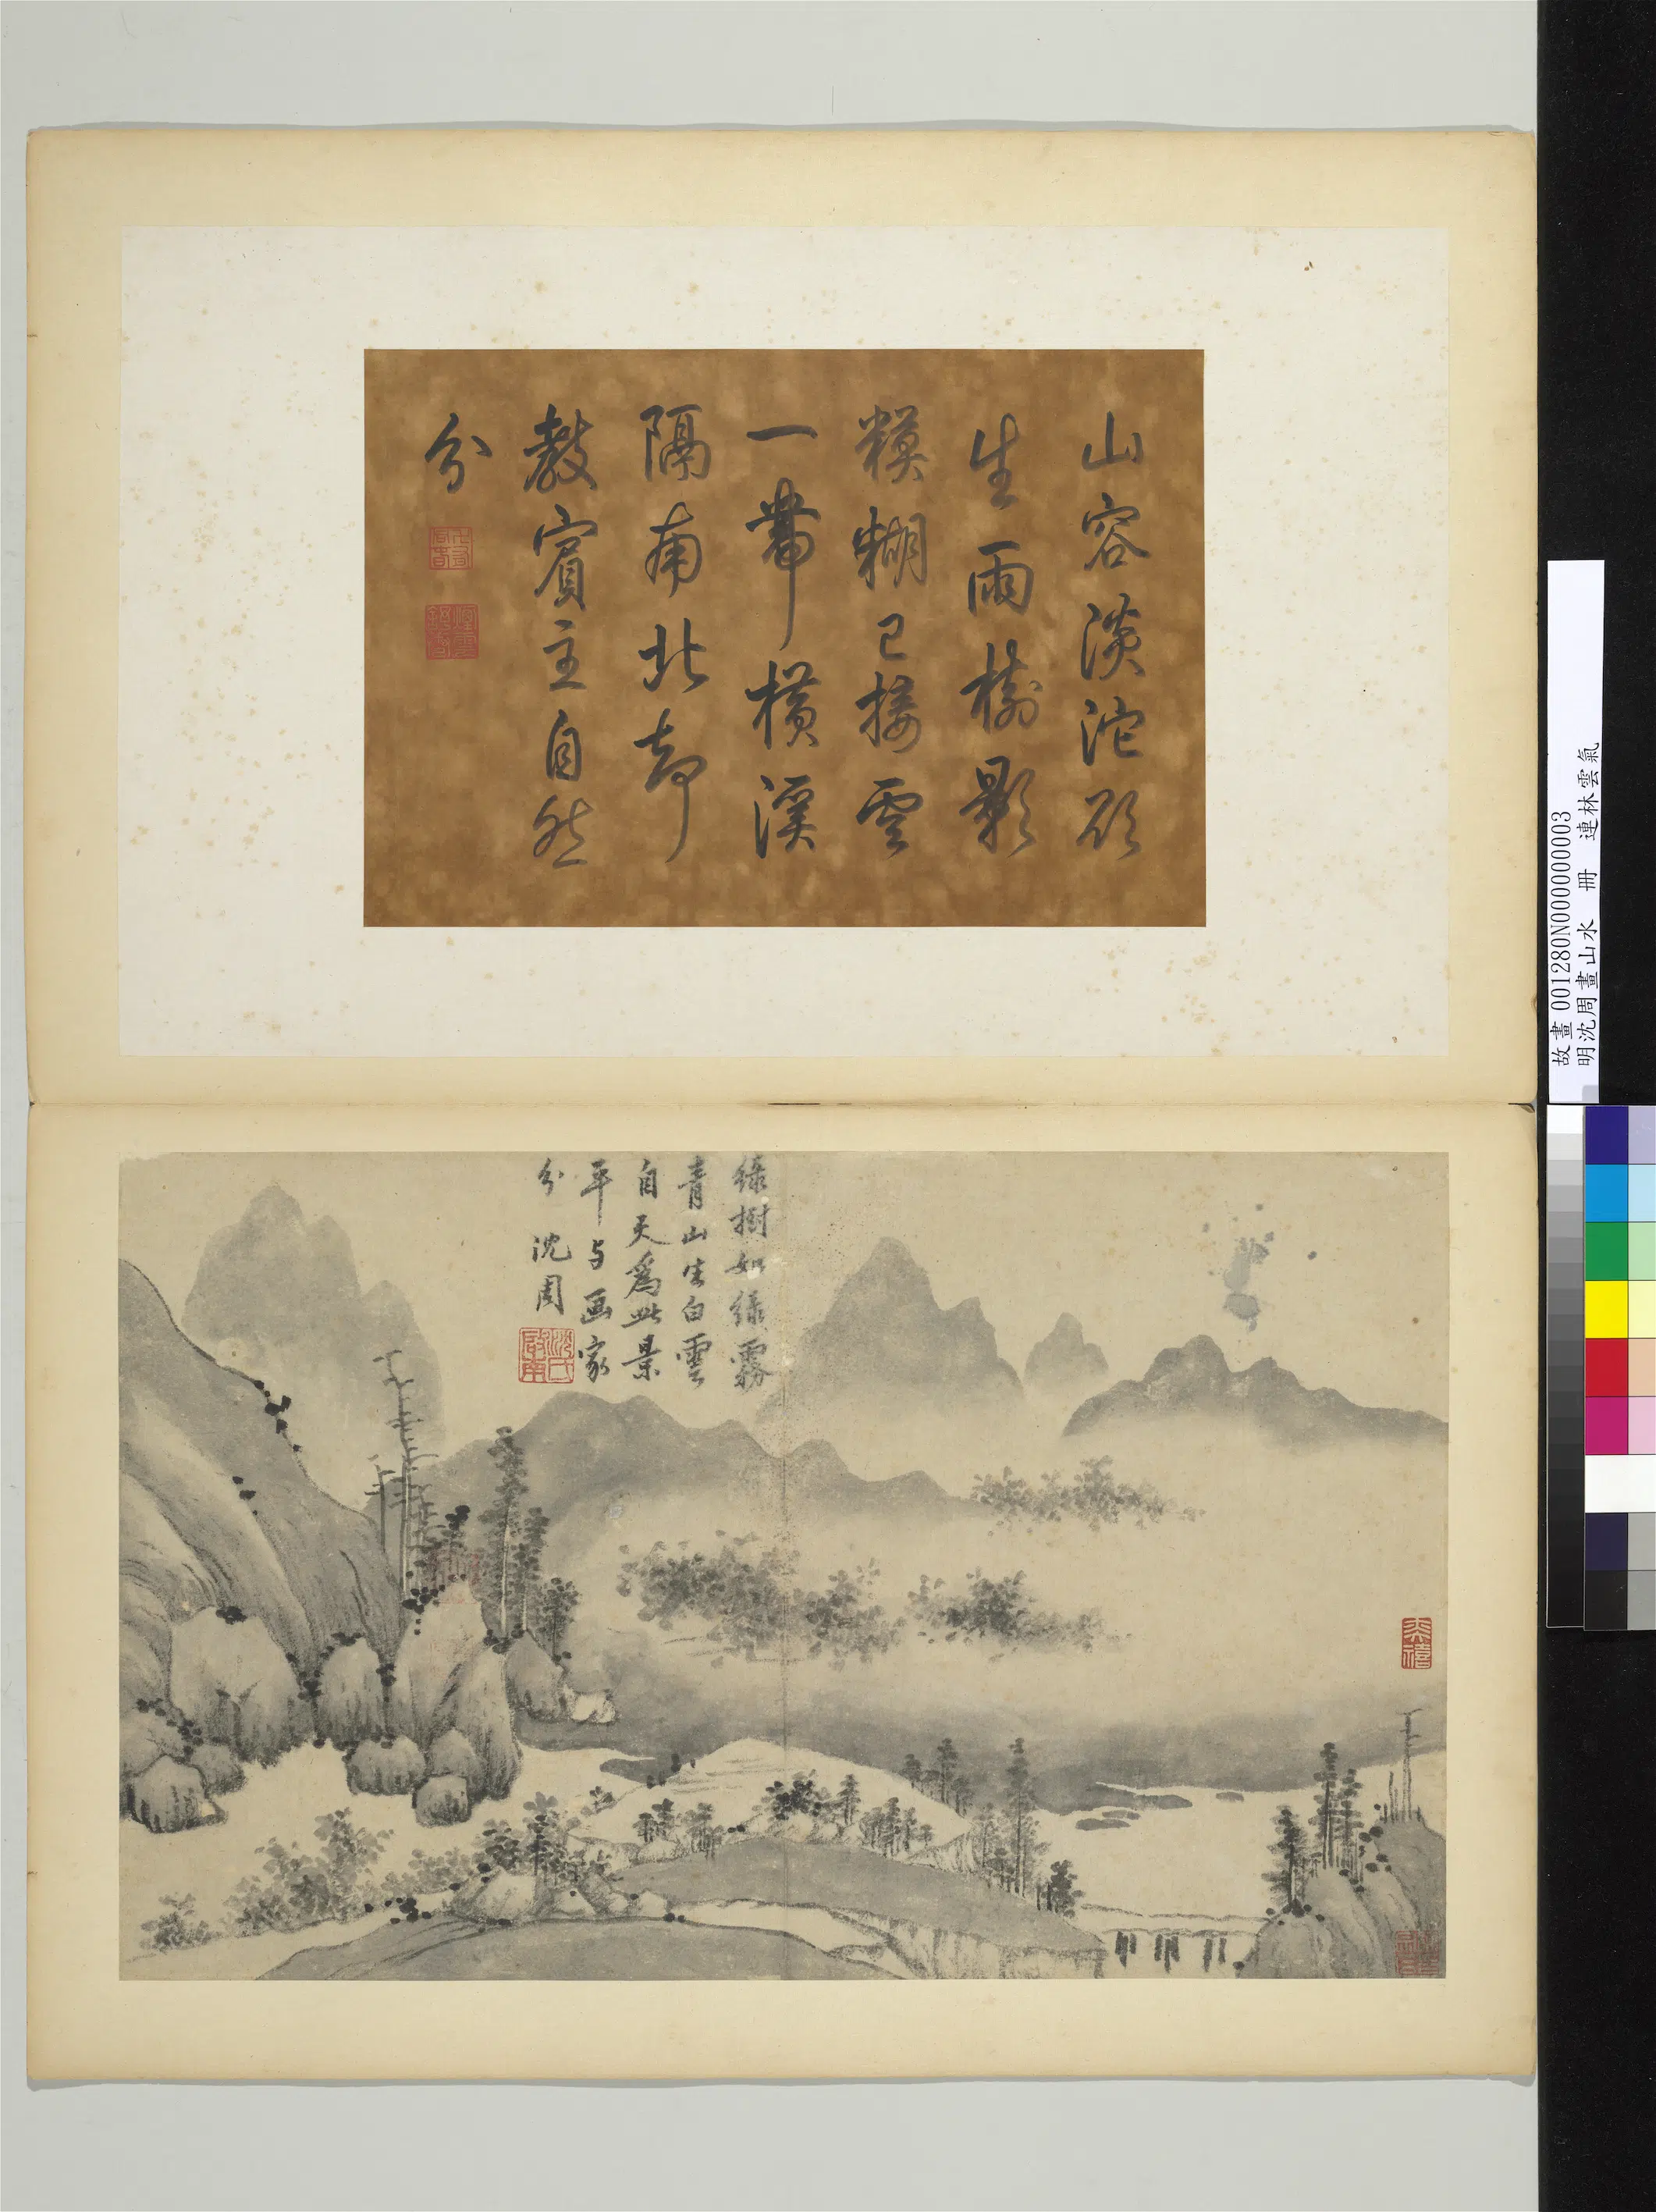 山容淡沱欲
生雨樹影
糢糊已接雲
一帶橫溪
隔南北却
教賓主自然
分
綠樹如綠霧
青山生白雲
自天為此景
平与画家
分 沈周
沈氏啟南
故畫 001280N000000003
明沈周畫山水 冊 連林雲氣